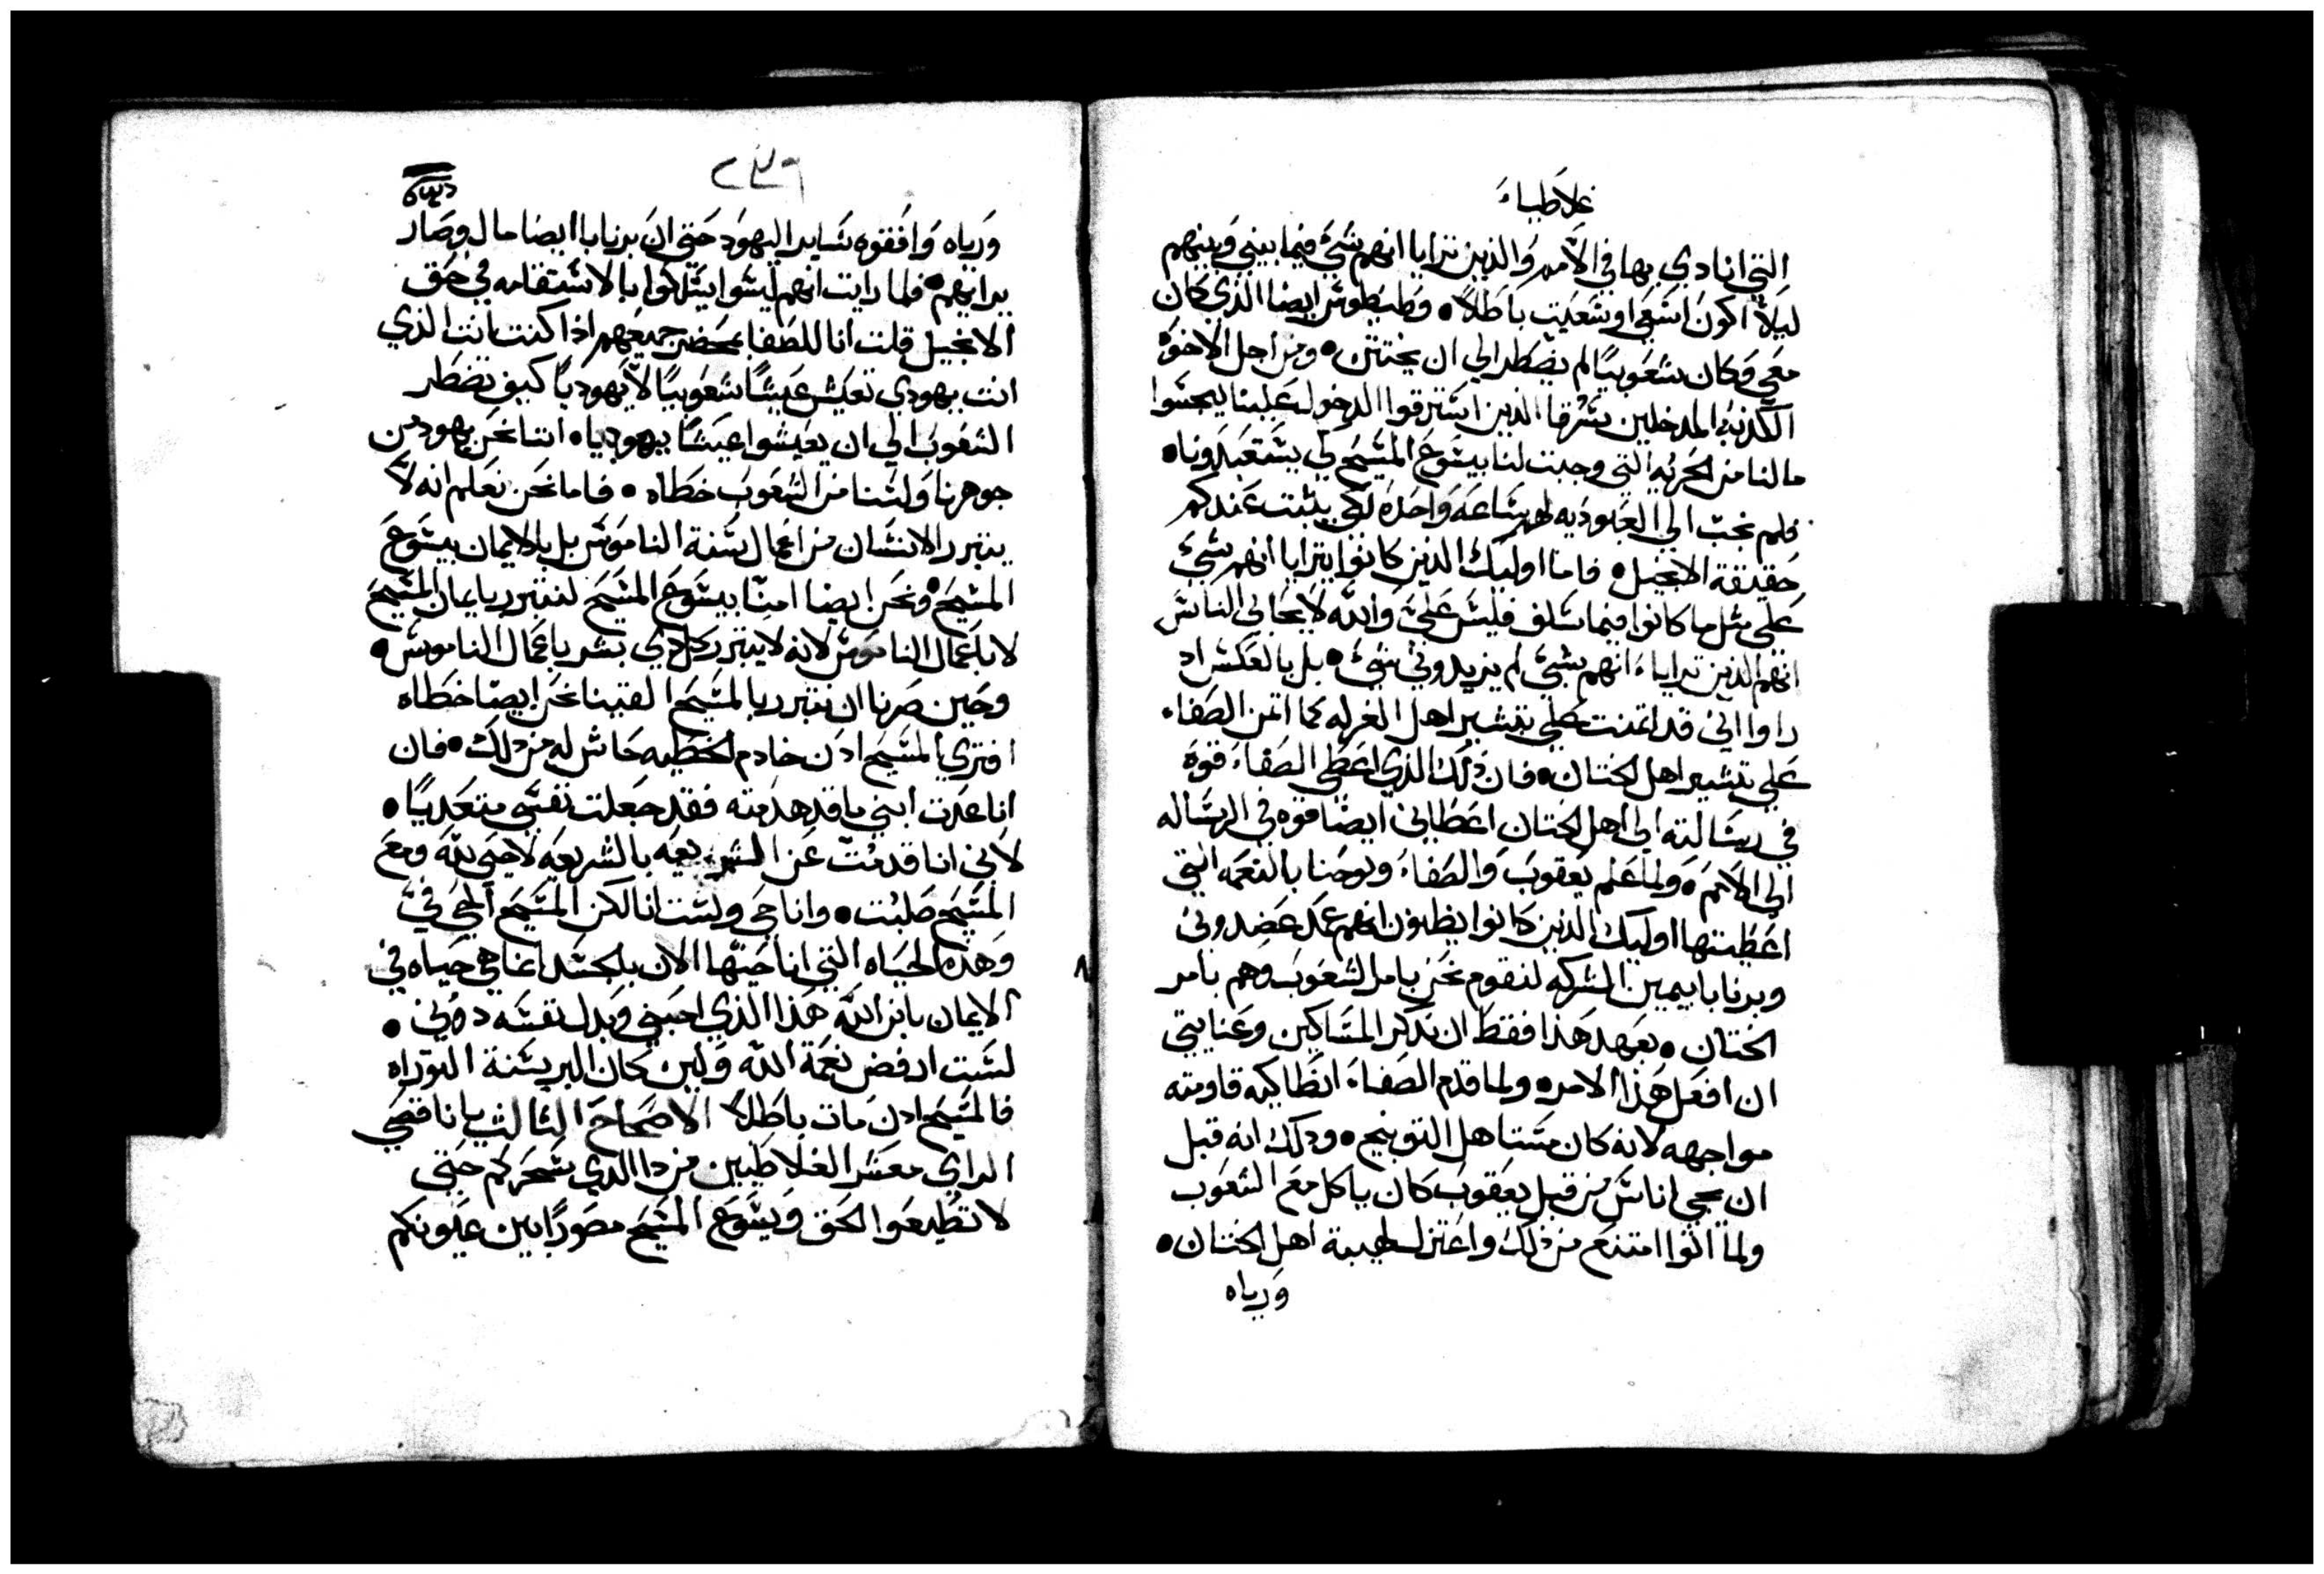 غلاطياء
التي انادي بها في الأمم والذين تترايا انهم شيء فيما بيني وبينهم
ليلا اكون اسعى او سعيت باطلا • وطيطوس ايضا الذي كان
معي وكان شعوبيا لم يضطر الي ان يختتن • ومن اجل الاخوة
الكذبة المدخلين سرقا الذين استرقوا الدخول علينا ليجسوا
ما لنا من الحرية التي وجبت لنا بيسوع المسيح لكي يستعبدونا •
فلم نجب الي العبودية لهم ساعه واحده لكي يثبت عندكم
حقيقة الانجيل • فاما اوليك الذين كانوا يترايا انهم شيء
علي مثل ما كانوا فيما سلف فليس علي والله لا يحابي الناس
انهم الذين ترايا انهم شيء لم يزيدوني شيء • بل بالعكس اد
راوا اني قد اتمنت علي تبشير اهل الغرله كما اتمن الصفاء
علي تبشير اهل الختان • فان ذلك الذي اعطى الصفاء قوة
في رسالته الي اهل الختان اعطاني ايضا قوه في الرساله
الي الأمم • ولما علم يعقوب والصفاء ويوحنا بالنعمه التي
اعطيتها اوليك الذين كانوا يظنون انهم عمد عضدوني
وبرنابا بيمين الشركه لنقوم نحن بامر الشعوب وهم بامر
الختان • بعهد هذا فقط ان نذكر المساكين وعنايتي
ان افعل هذا الامر • ولما قدم الصفاء انطاكيه قاومته
مواجهه لانه كان مستاهل التوبيخ • ودلك انه قبل
ان يجي اناس من قبل يعقوب كان ياكل مع الشعوب
ولما اتوا امتنع من ذلك واعتزل لهيبة اهل الختان •
ورياه
٢٤٦
ورياه وافقوه ساير اليهود حتي ان برنابا ايضا مال وصار
برايهم • فلما رايت انهم ليسوا يسلكوا بالاستقامه في حق
الانجيل قلت انا للصفا بمحضر جميعهم اذا كنت انت الذي
انت يهودي تعيش عيشا شعوبيا لا يهوديا كيف تضطر
الشعوب الي ان يعيشوا عيشا يهوديا • اننا نحن يهود من
جوهرنا ولسنا من الشعوب خطاه • فاما نحن نعلم انه لا
يتبرر الانسان من اعمال سنة الناموس بل بالايمان بيسوع
المسيح • ونحن ايضا امنا بيسوع المسيح لنتبرر بايمان المسيح
لا باعمال الناموس لانه لا يتبرر كل ذي بشر باعمال الناموس •
وحين صرنا ان نتبرر بالمسيح الفينا نحن ايضا خطاه
افتري المسيح ادن خادم الخطيه حاش له من دلك • فان
انا عدت ابني ما قد هدمته فقد جعلت نفسي متعديا •
لاني انا قدمت عن الشريعه بالشريعه لاحيى لله ومع
المسيح صلبت • وانا حي ولست انا لكن المسيح الحي في
وهذه الحياه التي انا حيتها الان بالجسد انما هي حياه في
الايمان بابن الله هذا الذي احبني وبدل نفسه دوني •
لست ارفض نعمة الله ولين كان البر بسنة التوراه
فالمسيح ادن مات باطلا الاصحاح الثالث يا ناقصي
الراي معشر الغلاطيين من دا الدي سحركم حتى
لا تطيعوا الحق ويسوع المسيح مصورا بين عيونكم